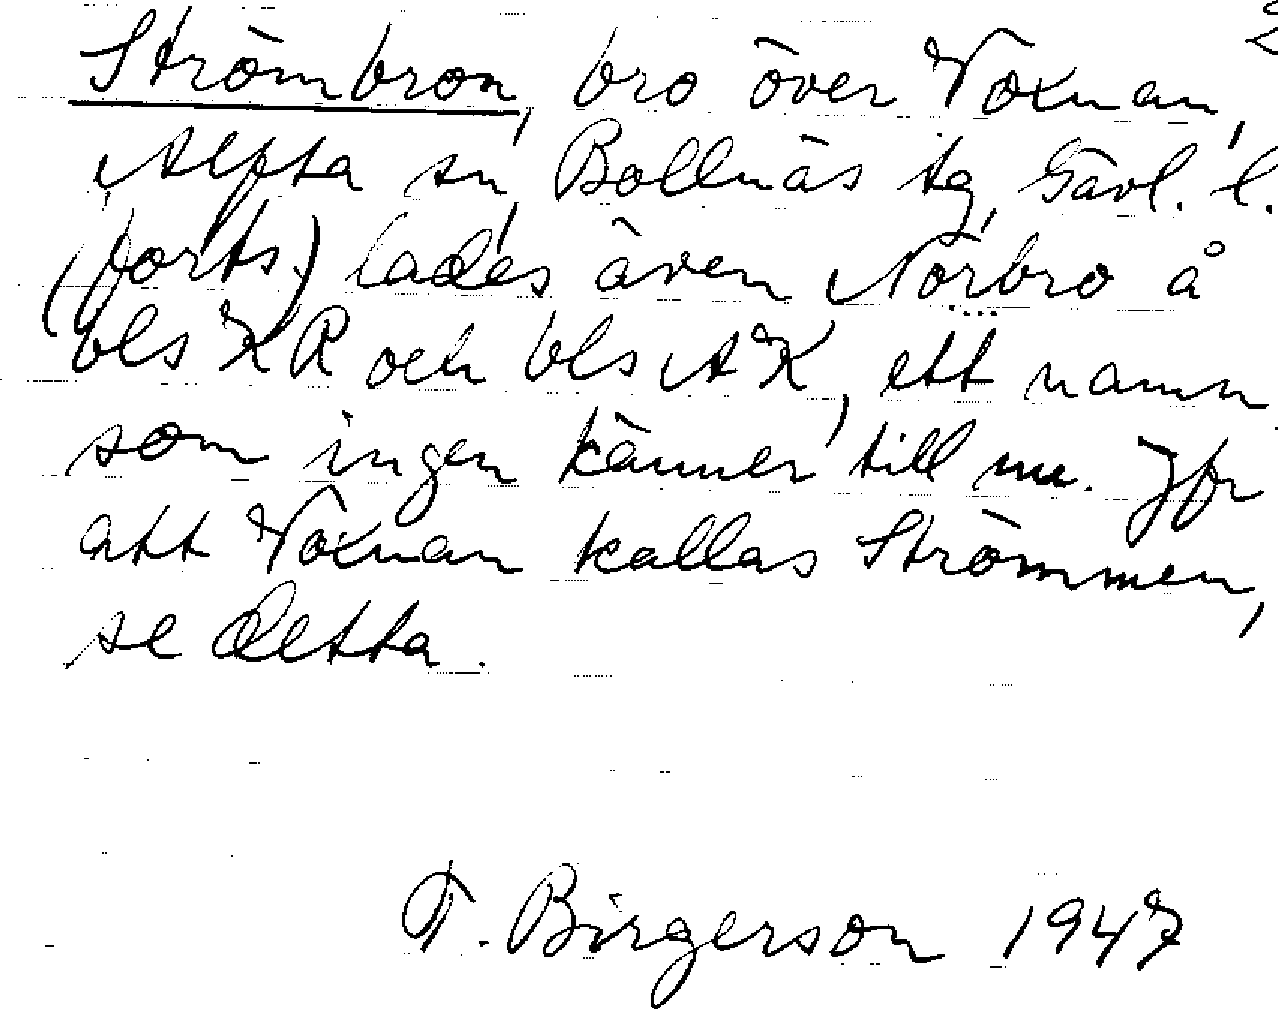 2
Strömbron, bro över Voxnan,
Alfta sn, Bollnäs tg, Gävl. l.
(forts.) lades även Norbro å
bls KR och bls AK, ett namn
som ingen känner till nu. Jfr
att Voxnan kallas Strömmen,
se detta.
T. Birgerson 1947